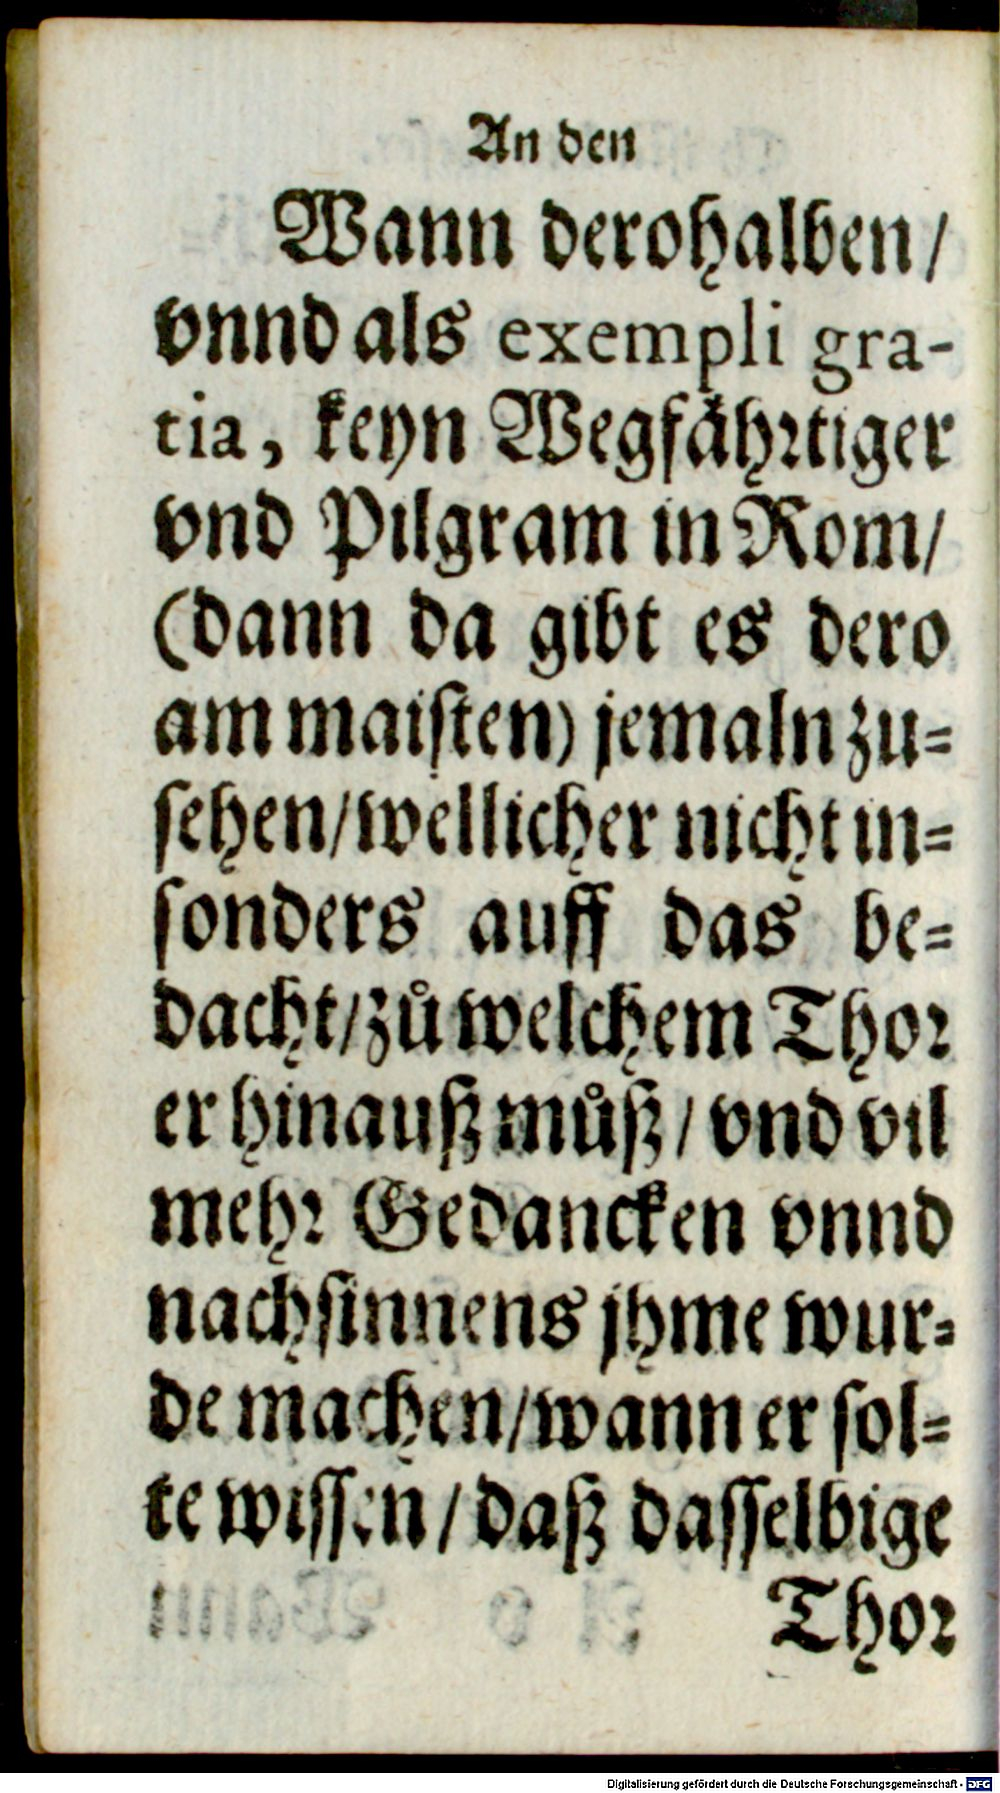 An den
Wann derohalben/
vnnd als exempli gra-
tia, keyn Wegfährtiger
vnd Pilgram in Rom/
(dann da gibt es dero
am maisten) jemaln zu-
sehen/wellicher nicht in-
sonders auff das be-
dacht/zů welchem Thor
er hinauß můß/ vnd vil
mehr Gedancken vnnd
nachsinnens jhme wur-
de machen/wann er sol-
te wissen/ daß dasselbige
Thor
Digitalisierung gefördert durch die Deutsche Forschungsgemeinschaft - DFG